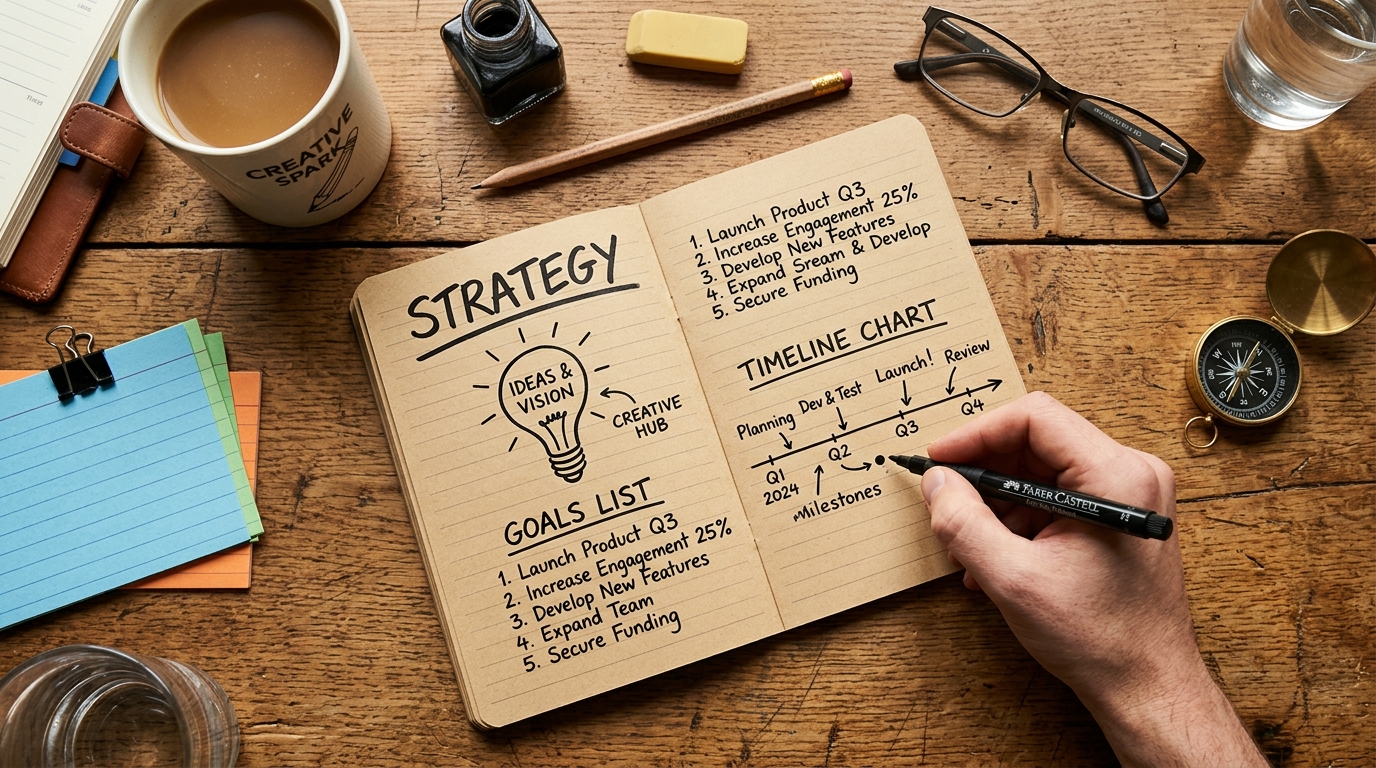 CREATIVE
SPARK
STRATEGY
IDEAS &
VISION
CREATIVE
HUB
GOALS LIST
1. Launch Product Q3
2. Increase Engagement 25%
3. Develop New Features
4. Expand Team
5. Secure Funding
1. Launch Product Q3
2. Increase Engagement 25%
3. Develop New Features
4. Expand Sream & Develop
5. Secure Funding
TIMELINE CHART
Planning Dev & Test Launch! Review
Q1 Q2 Q3 Q4
2024
Milestones
FABER CASTELL
N